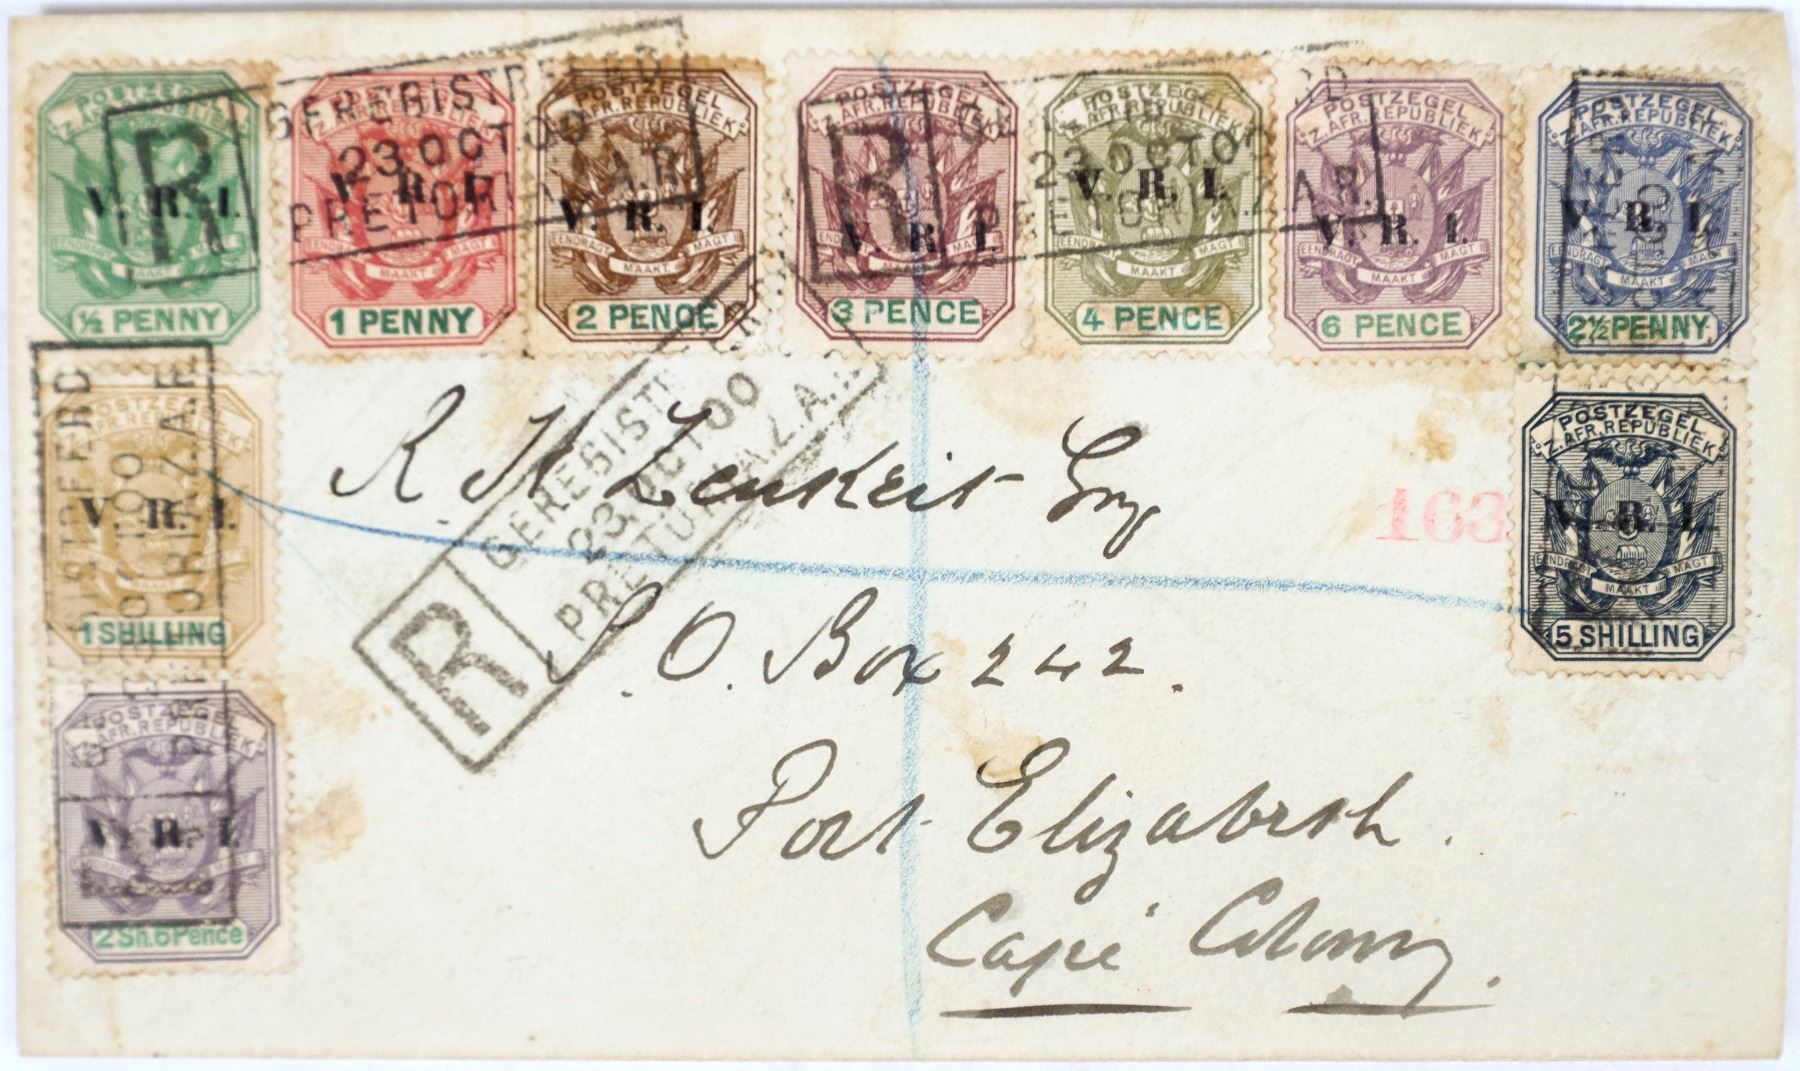 POSTZEGEL
Z. AFR. REPUBLIEK
V. R. I.
½ PENNY
POSTZEGEL
Z. AFR. REPUBLIEK
V. R. I.
EENDRAGT MAAKT MAGT
1 PENNY
POSTZEGEL
Z. AFR. REPUBLIEK
V. R. I.
EENDRAGT MAAKT MAGT
2 PENCE
POSTZEGEL
Z. AFR. REPUBLIEK
V. R. I.
EENDRAGT MAAKT MAGT
3 PENCE
POSTZEGEL
Z. AFR. REPUBLIEK
V. R. I.
EENDRAGT MAAKT MAGT
4 PENCE
POSTZEGEL
Z. AFR. REPUBLIEK
V. R. I.
EENDRAGT MAAKT MAGT
6 PENCE
POSTZEGEL
Z. AFR. REPUBLIEK
V. R. I.
EENDRAGT MAAKT MAGT
2½ PENNY
R GEREGISTREERD
23 OCT 00
PRETORIA Z.A.R.
R GEREGISTREERD
23 OCT 00
PRETORIA Z.A.R.
POSTZEGEL
Z. AFR. REPUBLIEK
V. R. I.
1 SHILLING
POSTZEGEL
Z. AFR. REPUBLIEK
V. R. I.
2 Sh. 6 Pence
POSTZEGEL
Z. AFR. REPUBLIEK
V. R. I.
EENDRAGT MAAKT MAGT
5 SHILLING
R GEREGISTREERD
23 OCT 00
PRETORIA Z.A.R.
163
R H Lenkeit Esq
P. O. Box 242.
Port Elizabeth.
Cape Colony.